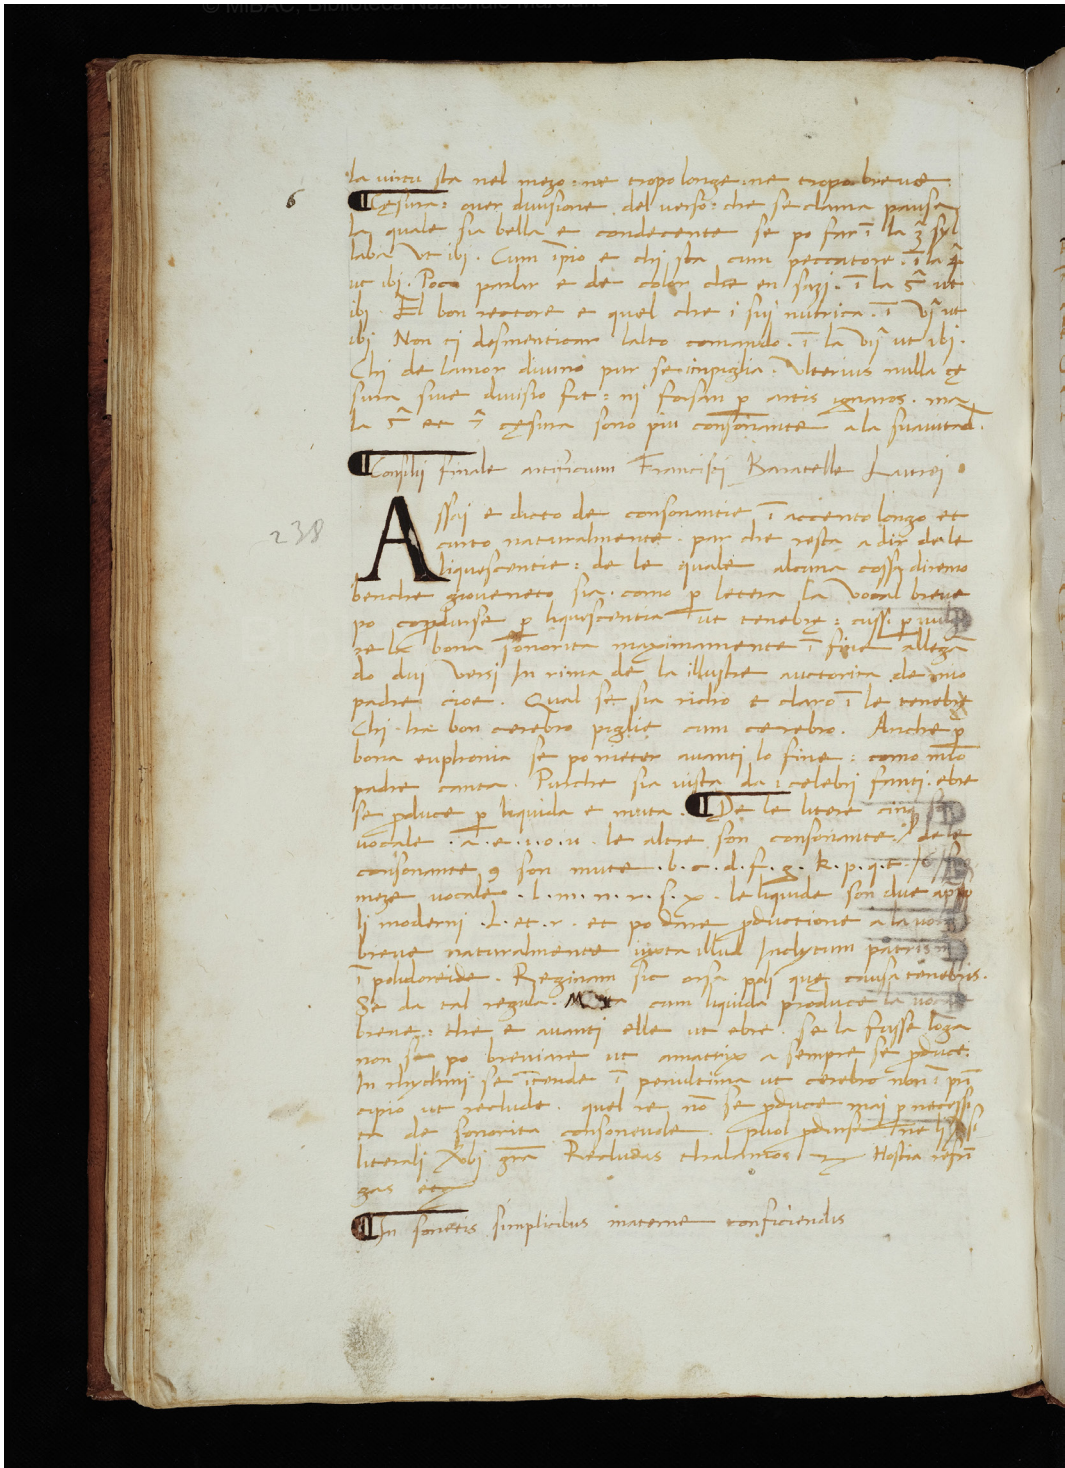 © MiBAC, Biblioteca Nazionale Marciana
la virtu sta nel mezo: ne tropo longe ne tropo breve.
6
Cęsura: over divisione del verso: che se clama pausa
la quale sia bella e condecente se po far ī la 3ª syl
laba ut ibi. Cum īpio e chi sta cum peccatore. ī la 4ª
ut ibi. Poco parlar e de color che en sazi. ī la 5ª ut
ibi. El bon rectore e quel che i suj nutrica. ī vjª ut
ibj Non ti desmenticar lalto comando. ī la vijª ut ibi.
Chi de lamor divino pur se inpiglia. Ulterius nulla cę
sura sive divisio fit: ni forsan p artis ignaros. ma
la 5ª et 7ª cęsura sono piu consonante a la suavitad.
Consilij finale Francisci Baratelle Laurei
238
Assaj e dicto de consonantie ī accento longo et
curto naturalmente. par che resta a dir de le
liquescentie: de le quale alcuna cossa diremo
benche gioveneto sia. como p letera la vocal breve
po copdurse p liquescentia ut tenebrę: cussi p
re la bona sonorita maximamente ī fine allega
do dui versi In rima de la illustre auctorita de mio
padre cioe. Qual se sia richo e claro ī le tenebre
Chi ha bon cerebro piglie cum cerebro. Anche p
bona euphonia se po meter avanti lo fine: como mio
padre canta. Pulche sia vista da i celebri fanti. ebre
se pduce p liquida e muta. De le litere cinq son
vocale .a.e.i.o.u. le altre son consonante. de le
consonante 9 son mute .b.c.d.f.g.k.p.q.t.
meze vocale .l.m.n.r.s.x. le liquide son due apsso
li moderni .l. et .r. et po dare pductione a la vocal
breve naturalmente iuxta illud Inclytum patris
ī polidoreide. Reginam sic orsa poli quę causa tenebris.
Se da tal regula. Muta cum liquida produce la vocale
breve: che e avanti elle ut ebre. se la fusse loga
non se po breviare ut amatrix a sempre se pduce.
In rhythmj se ītende ī penultima ut cerebro non ī prī
cipio ut reclude. quel re nō se pduce maj p necessi
ta de sonorita consonevole. pvol pdurse ne li
literali Xbi gra Recludas thalamos Hostia refrī
gas etc
In sonetis simplicibus materne conficiendis